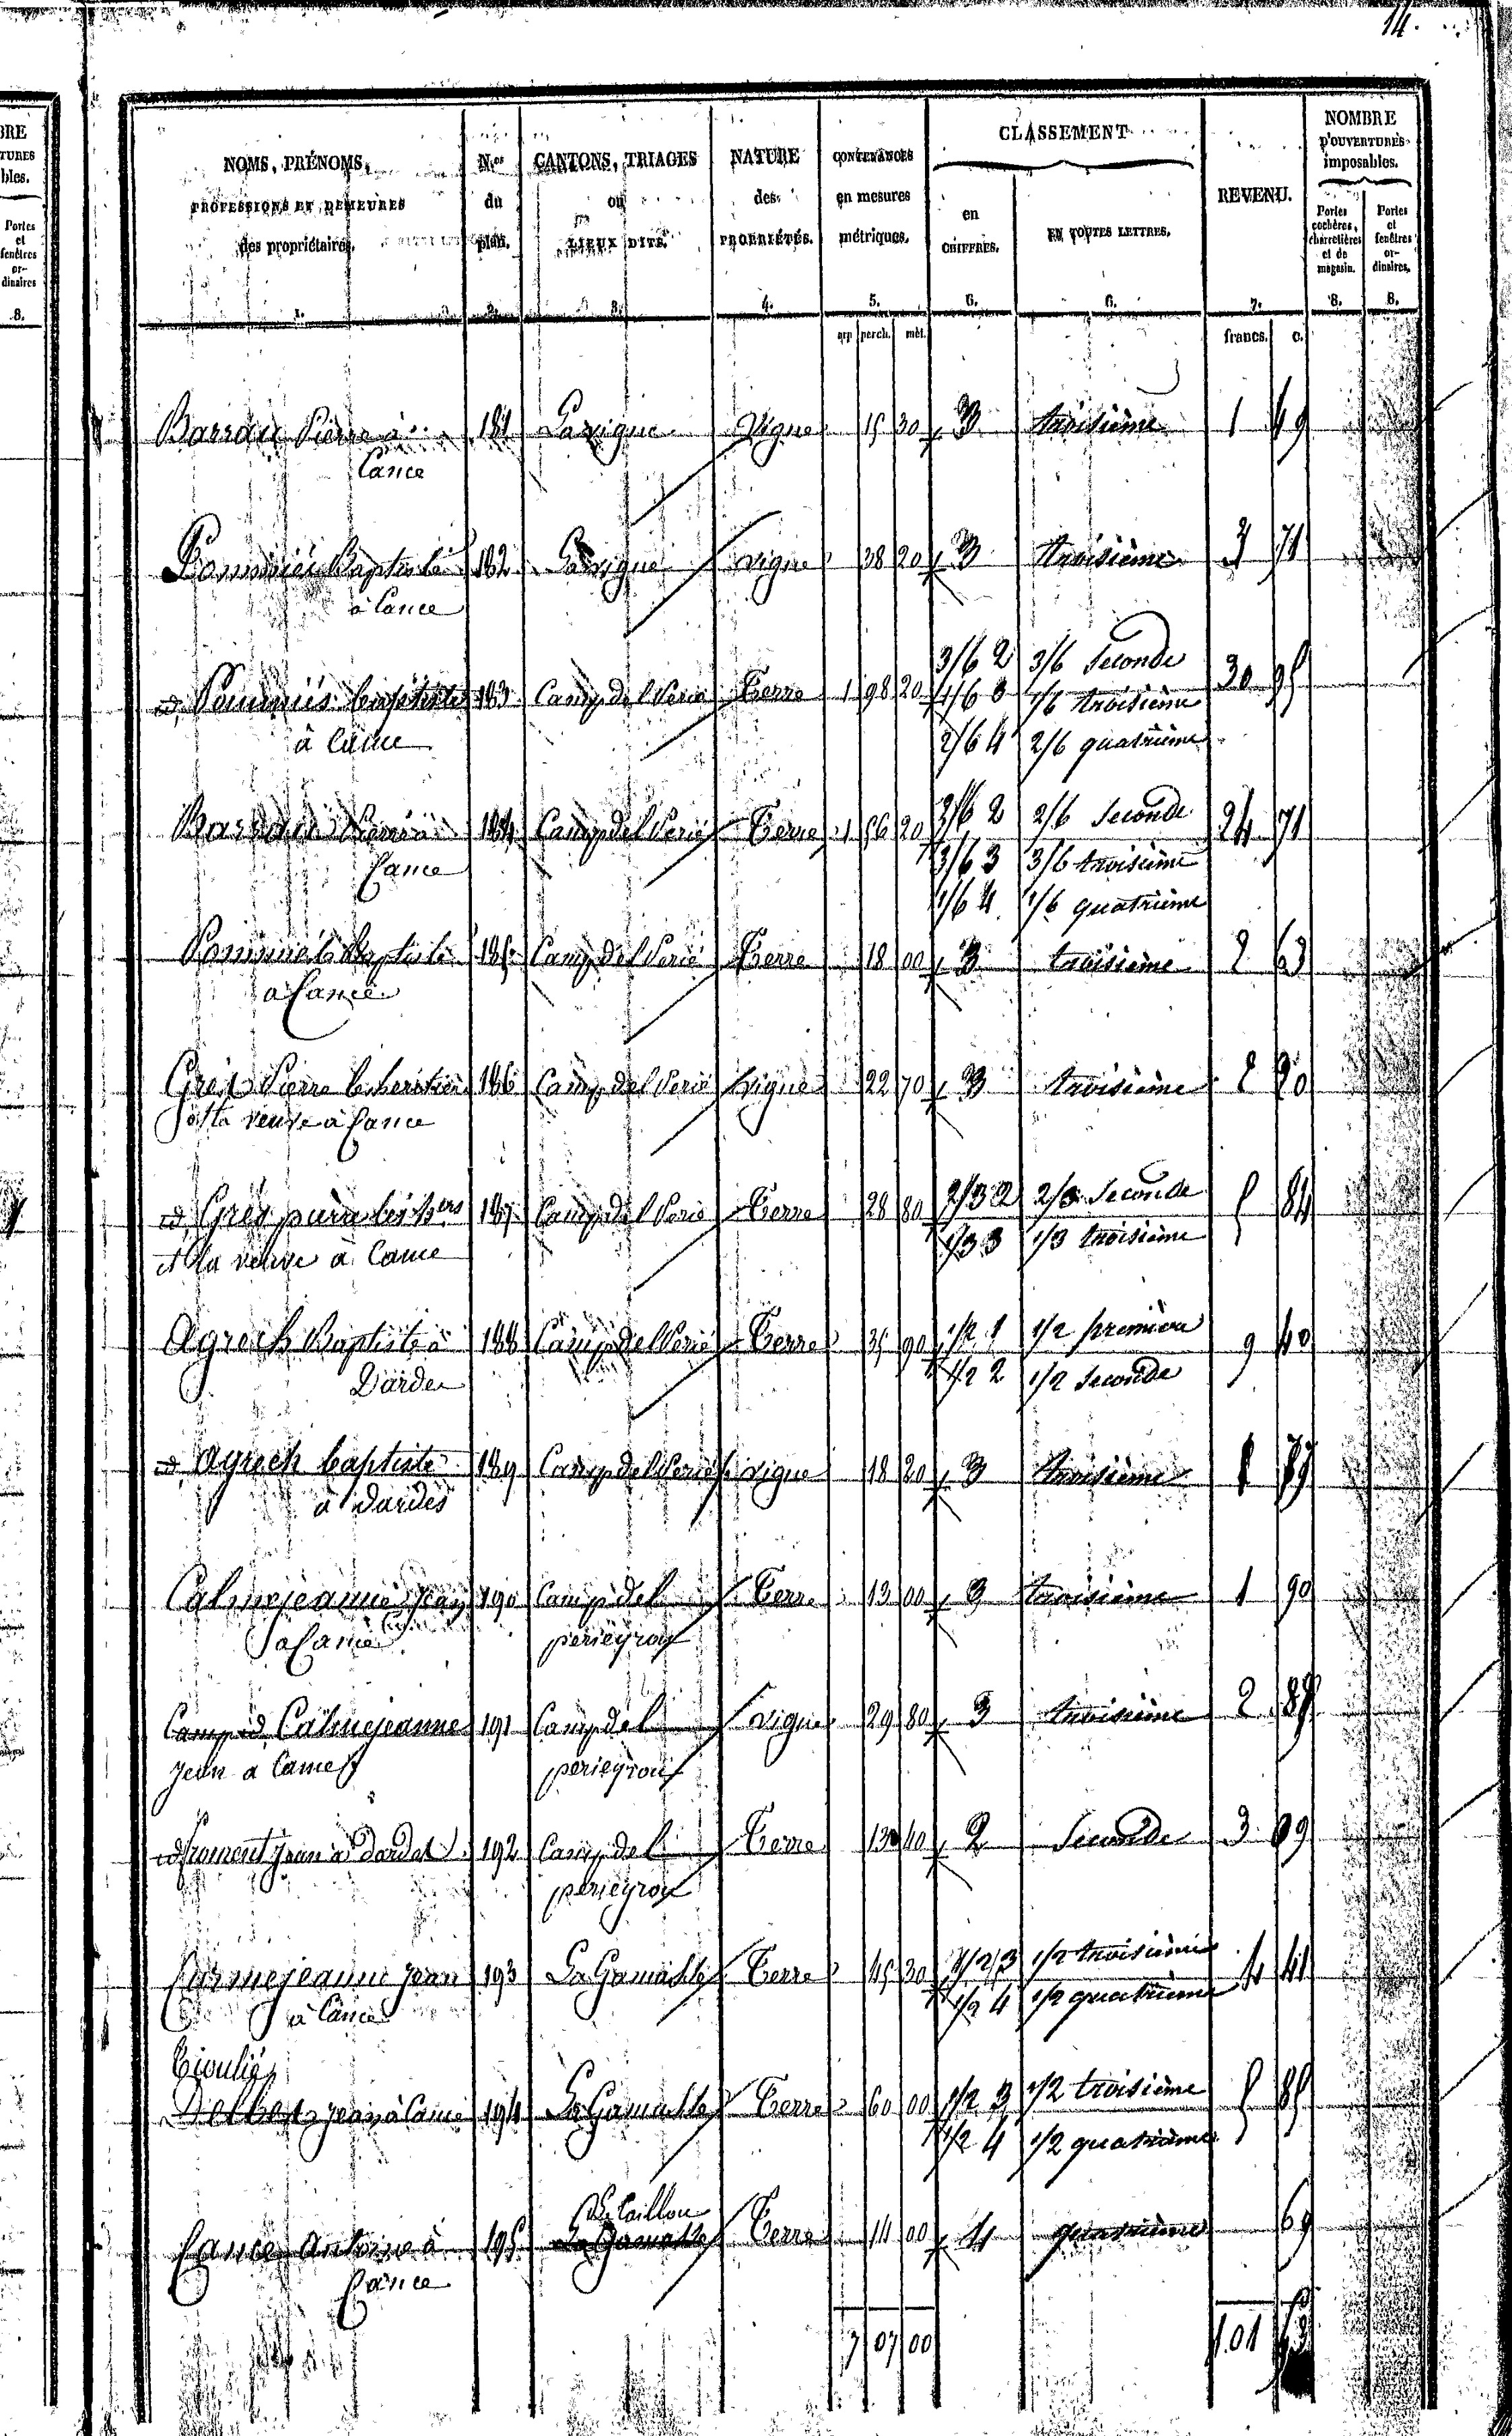 14.
BRE
TURES
bles.
Portes
et
fenêtres
or-
dinaires
8.
NOMS, PRÉNOMS,
PROFESSIONS ET DEMEURES
des propriétaires.
1.
N.os
du
plan.
2.
CANTONS, TRIAGES
ou
LIEUX DITS.
3.
NATURE
des
PROPRIÉTÉS.
4.
CONTENANCES
en mesures
métriques.
5.
CLASSEMENT
en
CHIFFRES.
6.
EN TOUTES LETTRES.
6.
REVENU.
7.
NOMBRE
D'OUVERTURES
imposables.
Portes
cochères,
charretières
et de
magasin.
8.
Portes
et
fenêtres
or-
dinaires.
8.
arp perch. mèt. francs. c.
Barrau Pierre à 181 Lavigne Vigne 15 30 3 troisième 1 49
Cance
Pommiés Baptiste 182 Lavigne vigne 38 20 3 troisième 3 71
à Cance
id, Pommiés baptiste 183 Camp del Perié Terre 1 98 20 3/6 2 3/6 Seconde 30 95
à Cance 1/6 3 1/6 troisième
2/6 4 2/6 quatrième
Barrau Pierre à 184 Camp del Perié Terre 1 56 20 2/6 2 2/6 Seconde 24 71
Cance 3/6 3 3/6 troisième
1/6 4 1/6 quatrième
Pommiés Baptiste 185 Camp del Perié Terre 18 00 3 troisième 2 63
à Cance
Grés Pierre les heritiers 186 Camp del Perié Vigne 22 70 3 troisième 2 20
et la veuve à Cance
id, Grés pierre les hers 187 Camp del Perié Terre 28 80 2/3 2 2/3 Seconde 5 84
et la veuve à Cance 1/3 3 1/3 troisième
Agrech Baptiste à 188 Camp del Perié Terre 35 90 1/2 1 1/2 première 9 40
Dardes 1/2 2 1/2 Seconde
id, agrech baptiste 189 Camp del Perié vigne 18 20 3 troisième 1 77
à Dardès
Calmejeanne Jean 190 Camp del Terre 13 00 3 troisième 1 90
à Cance perieyrou
Camp id, Calmejeanne 191 Camp del vigne 29 80 3 troisième 2 89
Jean à Cance perieyrou
id froment Jean à dardes 192 Camp del Terre 13 40 2 Seconde 3 09
perieyrou
Calmejeanne Jean 193 La Gamasse Terre 45 30 1/2 3 1/2 troisième 4 41
à Cance 1/2 4 1/2 quatrième
Tioulié,
Delbos Jean à Cance 194 La Gamasse Terre 60 00 1/2 3 1/2 troisième 5 85
1/2 4 1/2 quatrième
Le Caillou
Cance antoine à 195 La Gamasse Terre 14 00 4 quatrième 69
Cance
7 07 00 101 53